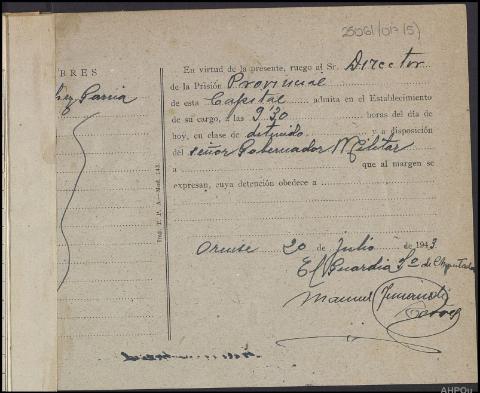 25061/017(5)
BRES
García
En virtud de la presente, ruego al Sr. Director
de la Prisión Provincial
de esta Capital admita en el Establecimiento
de su cargo, a las 3'30 horas del día de
hoy, en clase de detenido y a disposición
del señor Gobernador Militar
a que al margen se
expresan, cuya detención obedece a
Orense 20 de Julio de 1943
El Guardia 2º de
Manuel
AHPOu